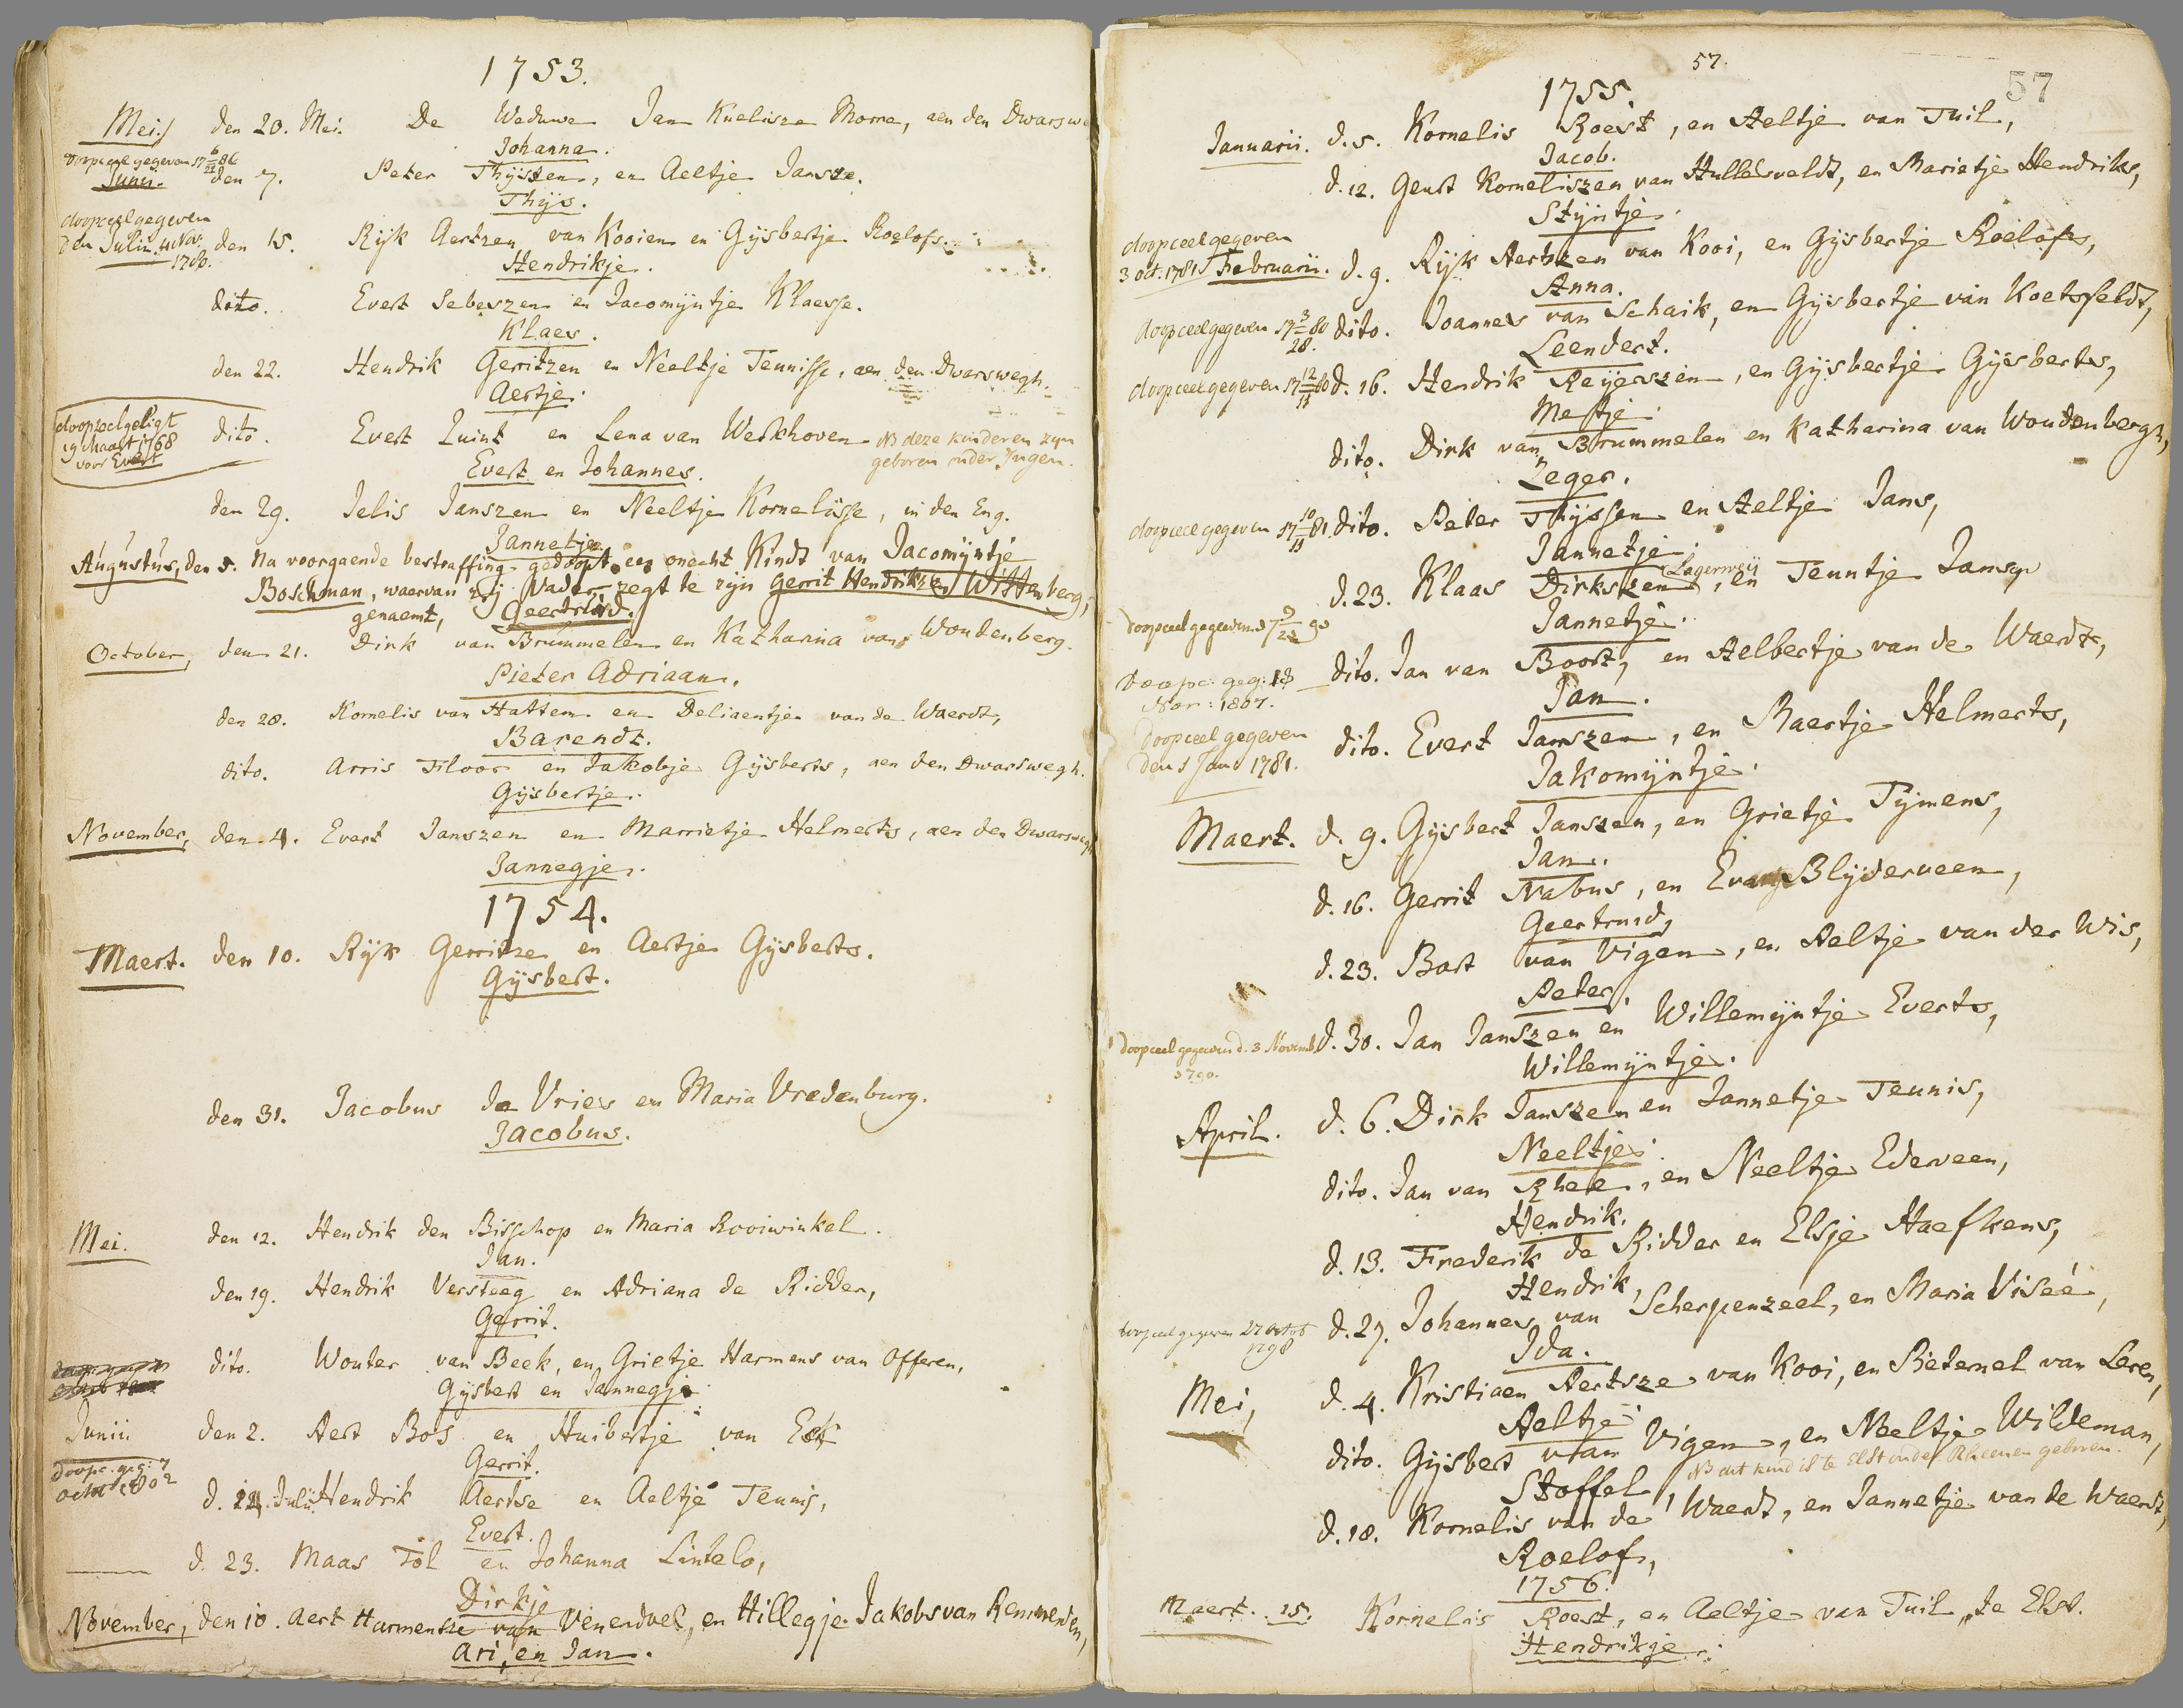 1753.
Mei. den 20. Mei. De Weduwe Jan Knelisze Morre, aen den Dwarswe
Johanna.
doopceel gegeven 17 6/22 86
Junii. den 7. Peter Thijszen, en Aeltje Jansze.
Thijs.
doopceel gegeven
den 4 Nov. 1780.
Julii. den 15. Rijk Aertzen van Kooien en Gijsbertje Roelofs.
Hendrikje.
dito. Evert Sebeszen en Jacomijntje Klaesse.
Klaes.
den 22. Hendrik Gerritzen en Neeltje Teunisse, aen den Dwarswegh.
Aertje.
doopceel geligt
19 Maart 1768
voor Evert
dito. Evert Quint en Lena van Werkhoven. NB deze kinderen zyn
geboren onder Ingen.
Evert en Johannes.
den 29. Jelis Janszen en Neeltje Kornelisse, in den Eng.
Jannetje.
Augustus, den 5. Na voorgaende bestraffing gedoopt een onecht Kindt van Jacomijntje
Boschman, waervan zij Vader zegt te zijn Gerrit Hendrikzen Wittenberg,
genaemt, Geertruid.
October, den 21. Dirk van Brummelen en Katharina van Woudenberg.
Pieter Adriaan.
den 28. Kornelis van Hattem en Deliaentje van de Waerdt,
Barendt.
dito. Arris Floor en Jakobje Gijsberts, aen den Dwarswegh.
Gijsbertje.
November, den 4. Evert Janszen en Marrietje Helmerts, aen den Dwarswegh
Jannegje.
1754.
Maert. den 10. Rijk Gerritze en Aertje Gijsberts.
Gijsbert.
den 31. Jacobus de Vries en Maria Vredenburg.
Jacobus.
Mei. den 12. Hendrik den Bisschop en Maria Rooiwinkel.
Jan.
den 19. Hendrik Versteeg en Adriana de Ridder,
Gerrit.
dito. Wouter van Beek, en Grietje Harmens van Offeren,
Gijsbert en Jannegje
Junii den 2. Aert Bos en Huibertje van Eck
Gerrit.
doopc. geg: 7
Octob 1802
d. 14. Julii. Hendrik Aertse en Aeltje Teunis,
Evert.
d. 23. Maas Tol en Johanna Lintelo,
Dirkje
November, den 10. Aert Harmentze van Venendael, en Hillegje Jakobs van Remmerden,
Ari, en Jan.
57.
57
1755.
Januarii. d. 5. Kornelis Roest, en Aeltje van Tuil,
Jacob.
d. 12. Geurt Korneliszen van Hullesveldt, en Marietje Hendriks,
Stijntje.
doopceel gegeven
3 oct. 1781
Februarii. d. 9. Rijk Aertszen van Kooi, en Gijsbertje Roelofs,
Anna.
doopceel gegeven 17 3/28 80 dito. Joannes van Schaik, en Gijsbertje van Koetsfeldt,
Leendert.
doopceel gegeven 17 12/11 80 d. 16. Hendrik Reijerszen, en Gijsbertje Gijsberts,
Metje.
dito. Dirk van Brummelen en Katharina van Woudenbergh,
Zeger.
doopceel gegeven 17 10/11 81 dito. Peter Thijssen en Aeltje Jans,
Jannetje.
d. 23. Klaas Dirkszen Lagerweij, en Teuntje Jansen
Jannetje.
doopceel gegeven 17 9/22 90
dito. Jan van Boort, en Aelbertje van de Waerdt,
Jan.
doopc: geg: 13
Nov: 1807.
doopceel gegeven
den 1 Jan 1781.
dito. Evert Janszen, en Maertje Helmerts,
Jakomijntje.
Maert. d. 9. Gijsbert Janszen, en Grietje Tijmens,
Jan.
d. 16. Gerrit Nabus, en Evang Blijderveen,
Geertruid,
d. 23. Bart van Vigen, en Aeltje van der Wis,
Peter.
doopceel gegeven d. 3 Novemb
1790.
d. 30. Jan Janszen en Willemijntje Everts,
Willemijntje.
April. d. 6. Dirk Janszen en Jannetje Teunis,
Neeltje.
dito. Jan van Rhee, en Neeltje Ederveen,
Hendrik.
d. 13. Frederik de Ridder en Elsje Haefkens,
Hendrik,
doopceel gegeven 27 octob
1798
d. 27. Johannes van Scherpenzeel, en Maria Viseé,
Ida.
Mei, d. 4. Kristiaen Aertsze van Kooi, en Pieternel van Leren,
Aeltje
dito. Gijsbert van Vigen, en Neeltje Wildeman,
Stoffel, NB dit kind is te Elst onder Rheenen geboren.
d. 18. Kornelis van de Waerdt, en Jannetje van de Waerdt,
Roelof,
1756.
Maert. 15. Kornelis Roest, en Aeltje van Tuil, te Elst.
Hendrikje.